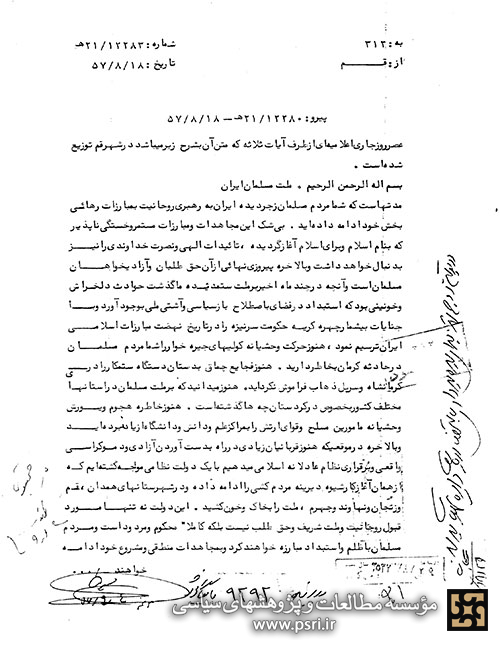 به: ۳۱۲
از: قم
شماره: ۲۱/۱۲۲۸۳هـ
تاریخ: ۵۷/۸/۱۸
پیرو: ۲۱/۱۲۲۸۰هـ - ۵۷/۸/۱۸
عصر روز جاری اعلامیه‌ای از طرف آیات ثلاثه که متن آن بشرح زیر میباشد در شهر قم توزیع
شده است.
بسم اله الرحمن الرحیم. ملت مسلمان ایران
مدتهاست که شما مردم مسلمان زجر دیده ایران به رهبری روحانیت بمبارزات رهائی
بخش خود ادامه داده‌اید. بی‌شک این مجاهدات و مبارزات مستمر و خستگی ناپذیر
که بنام اسلام و برای اسلام آغاز گردیده، تائیدات الهی و نصرت خداوندی را نیز
بدنبال خواهد داشت و بالاخره پیروزی نهائی از آن حق طلبان و آزادیخواهان
مسلمان است و آنچه در چند ماه اخیر بر ملت ستمدیده ما گذشت حوادث دلخراش
و خونینی بود که استبداد در فضای باصطلاح باز سیاسی و آشتی ملی بوجود آورد و با
جنایات بیشمار چهره کریه حکومت سرنیزه را در تاریخ نهضت مبارزات اسلامی
ایران ترسیم نمود، هنوز حرکت وحشیانه کولیهای جیره خوار را شما مردم مسلمان
در حادثه کرمان بخاطر دارید. هنوز فجایع جمعی بدستان دستگاه ستمکار را در
کرمانشاه و سرپل ذهاب فراموش نکرده‌اید. هنوز میدانید که بر ملت مسلمان در استانها
مختلف کشور بخصوص در کردستان چه ها گذشته است. هنوز خاطره هجوم و یورش
وحشیانه مامورین مسلح و قوای ارتش را بمراکز علم و دانش و دانشگاه از یاد نبرده‌اید
و بالاخره در موقعیکه هنوز قربانیان زیادی در راه بدست آوردن آزادی و دموکراسی
واقعی و برقراری نظام عادلانه اسلامی میدهیم با یک دولت نظامی مواجه گشته‌ایم که
از همان آغاز کار شیوه دیرینه مردم کشی را ادامه داده و در شهرستانهای همدان، قم
و زنجان و نهاوند و جهرم، ملت را بخاک و خون کشید. این دولت نه تنها مورد
قبول روحانیت و ملت شریف و حق طلب نیست بلکه کاملا" محکوم و مردود است و مردم
مسلمان با ظلم و استبداد مبارزه خواهند کرد و بمجاهدات منطقی و مشروع خود ادامه
خواهند
۹۲۹۲
مؤسسه مطالعات و پژوهشهای سیاسی
www.psri.ir